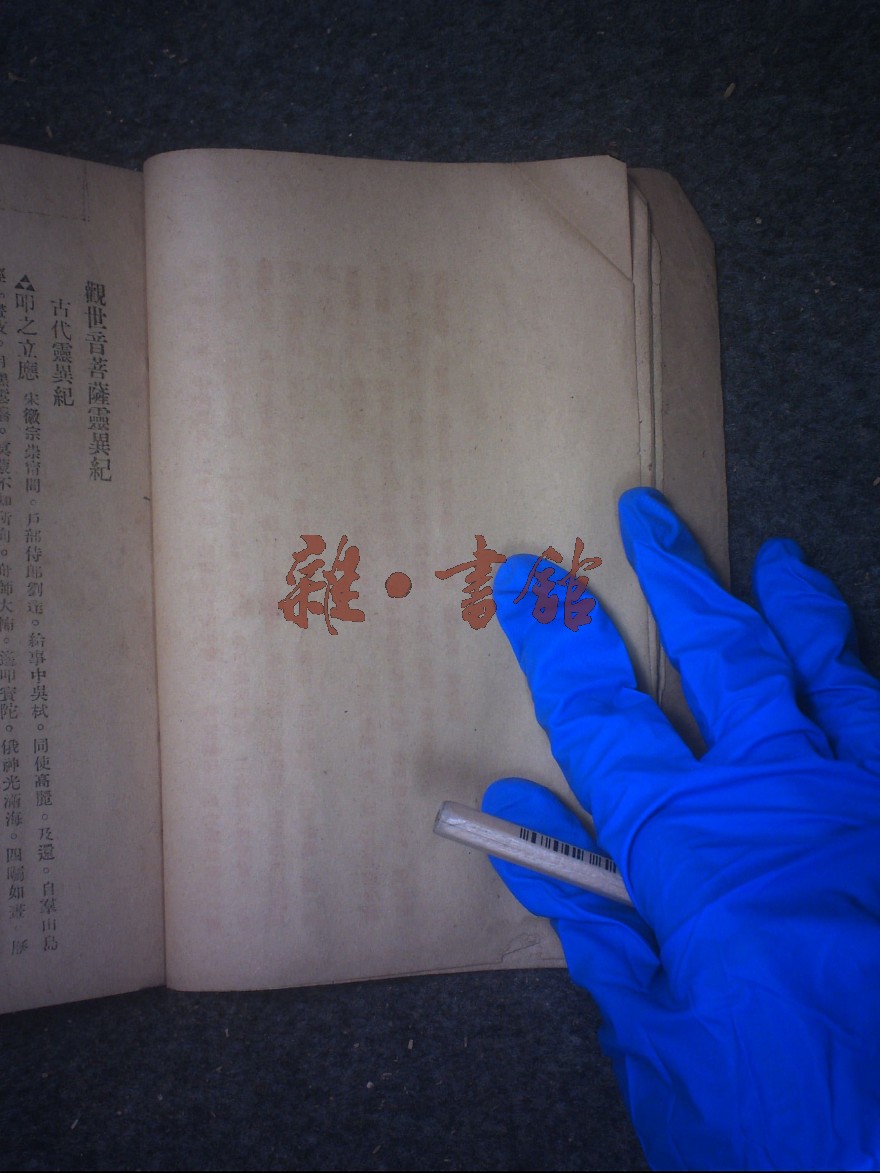 觀世音菩薩靈異紀
古代靈異紀
叩之立應 宋徽宗崇甯間。戶部侍郎劉逵。給事中吳栻。同使高麗。及還。自羣山島
不知所向。舟師大怖。遙叩寶陀。俄神光滿海。四矚如晝
雜·書館